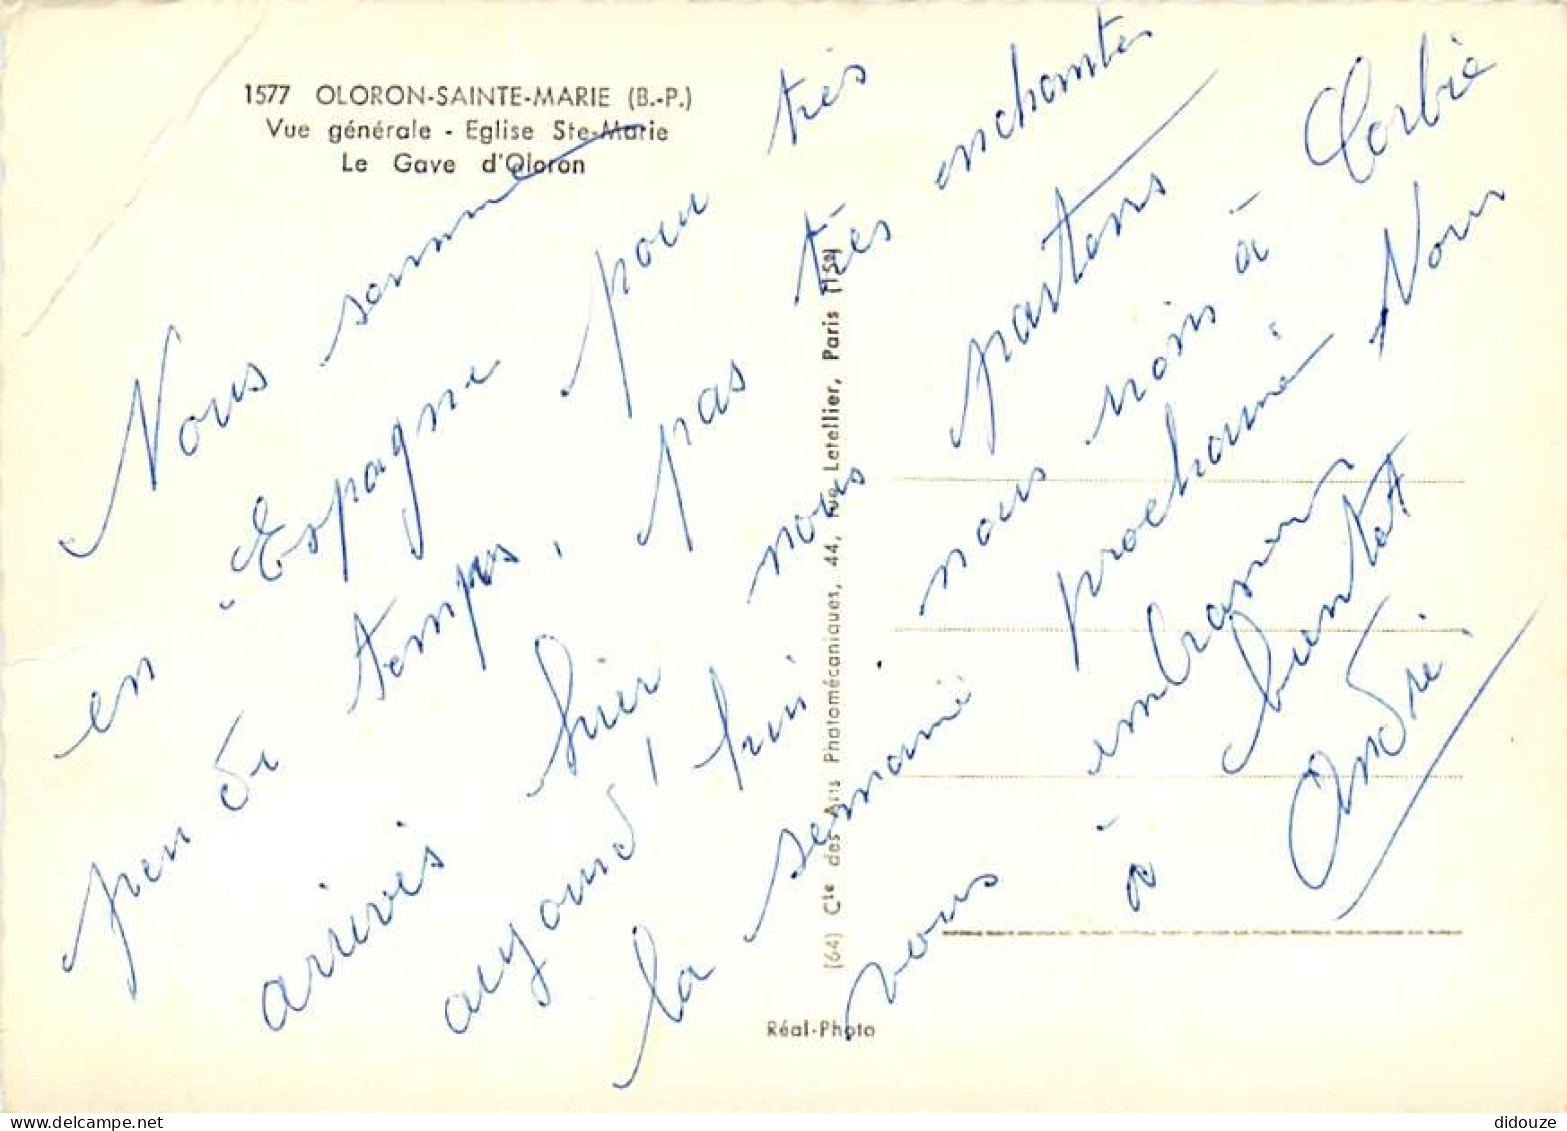 1577 OLORON-SAINTE-MARIE (B.-P.)
Vue générale - Eglise Ste-Marie
Le Gave d'Oloron
Nous somme
en Espagne pour très
peu de temps, pas très enchantés
arrivés hier nous partons
aujourd'hui. nous à Corbie
la semaine prochaine Nous
vous embrassons
à bientot
André
(64) Cie des Arts Photomécaniques, 44, rue Letellier, Paris (15e)
Réal-Photo
didouze